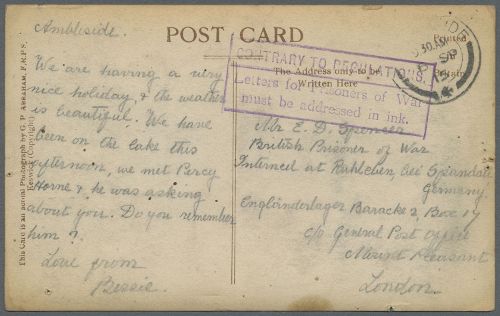 POST CARD
Printed
The Address only to be
Written Here
CONTRARY TO REGULATIONS.
Letters for Prisoners of War
must be addressed in ink.
30 AM
SP
This Card is an actual Photograph by G. P. ABRAHAM, F.R.P.S.
Keswick (Copyright)
Ambleside.
We are having a very
nice holiday, & the weather
is beautiful. We have
been on the lake this
afternoon, we met Percy
Horne & he was asking
about you. Do you remember
him?
Love from
Bessie.
Mr E. D. Spencer
British Prisoner of War
Interned at Ruhleben, bei Spandau
Germany
Engländerlager Baracke 2, Box 17
c/o General Post Office
Mount Pleasant
London.